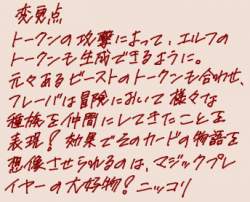 変更点
トークンの攻撃によって、エルフの
トークンも生成できるように。
元々あるビーストのトークンも合わせ、
フレーバは冒険において様々な
種族を仲間にしてきたことを
表現！効果でそのカードの物語を
想像させられるのは、マジックプレ
イヤーの大好物！ニッコリ